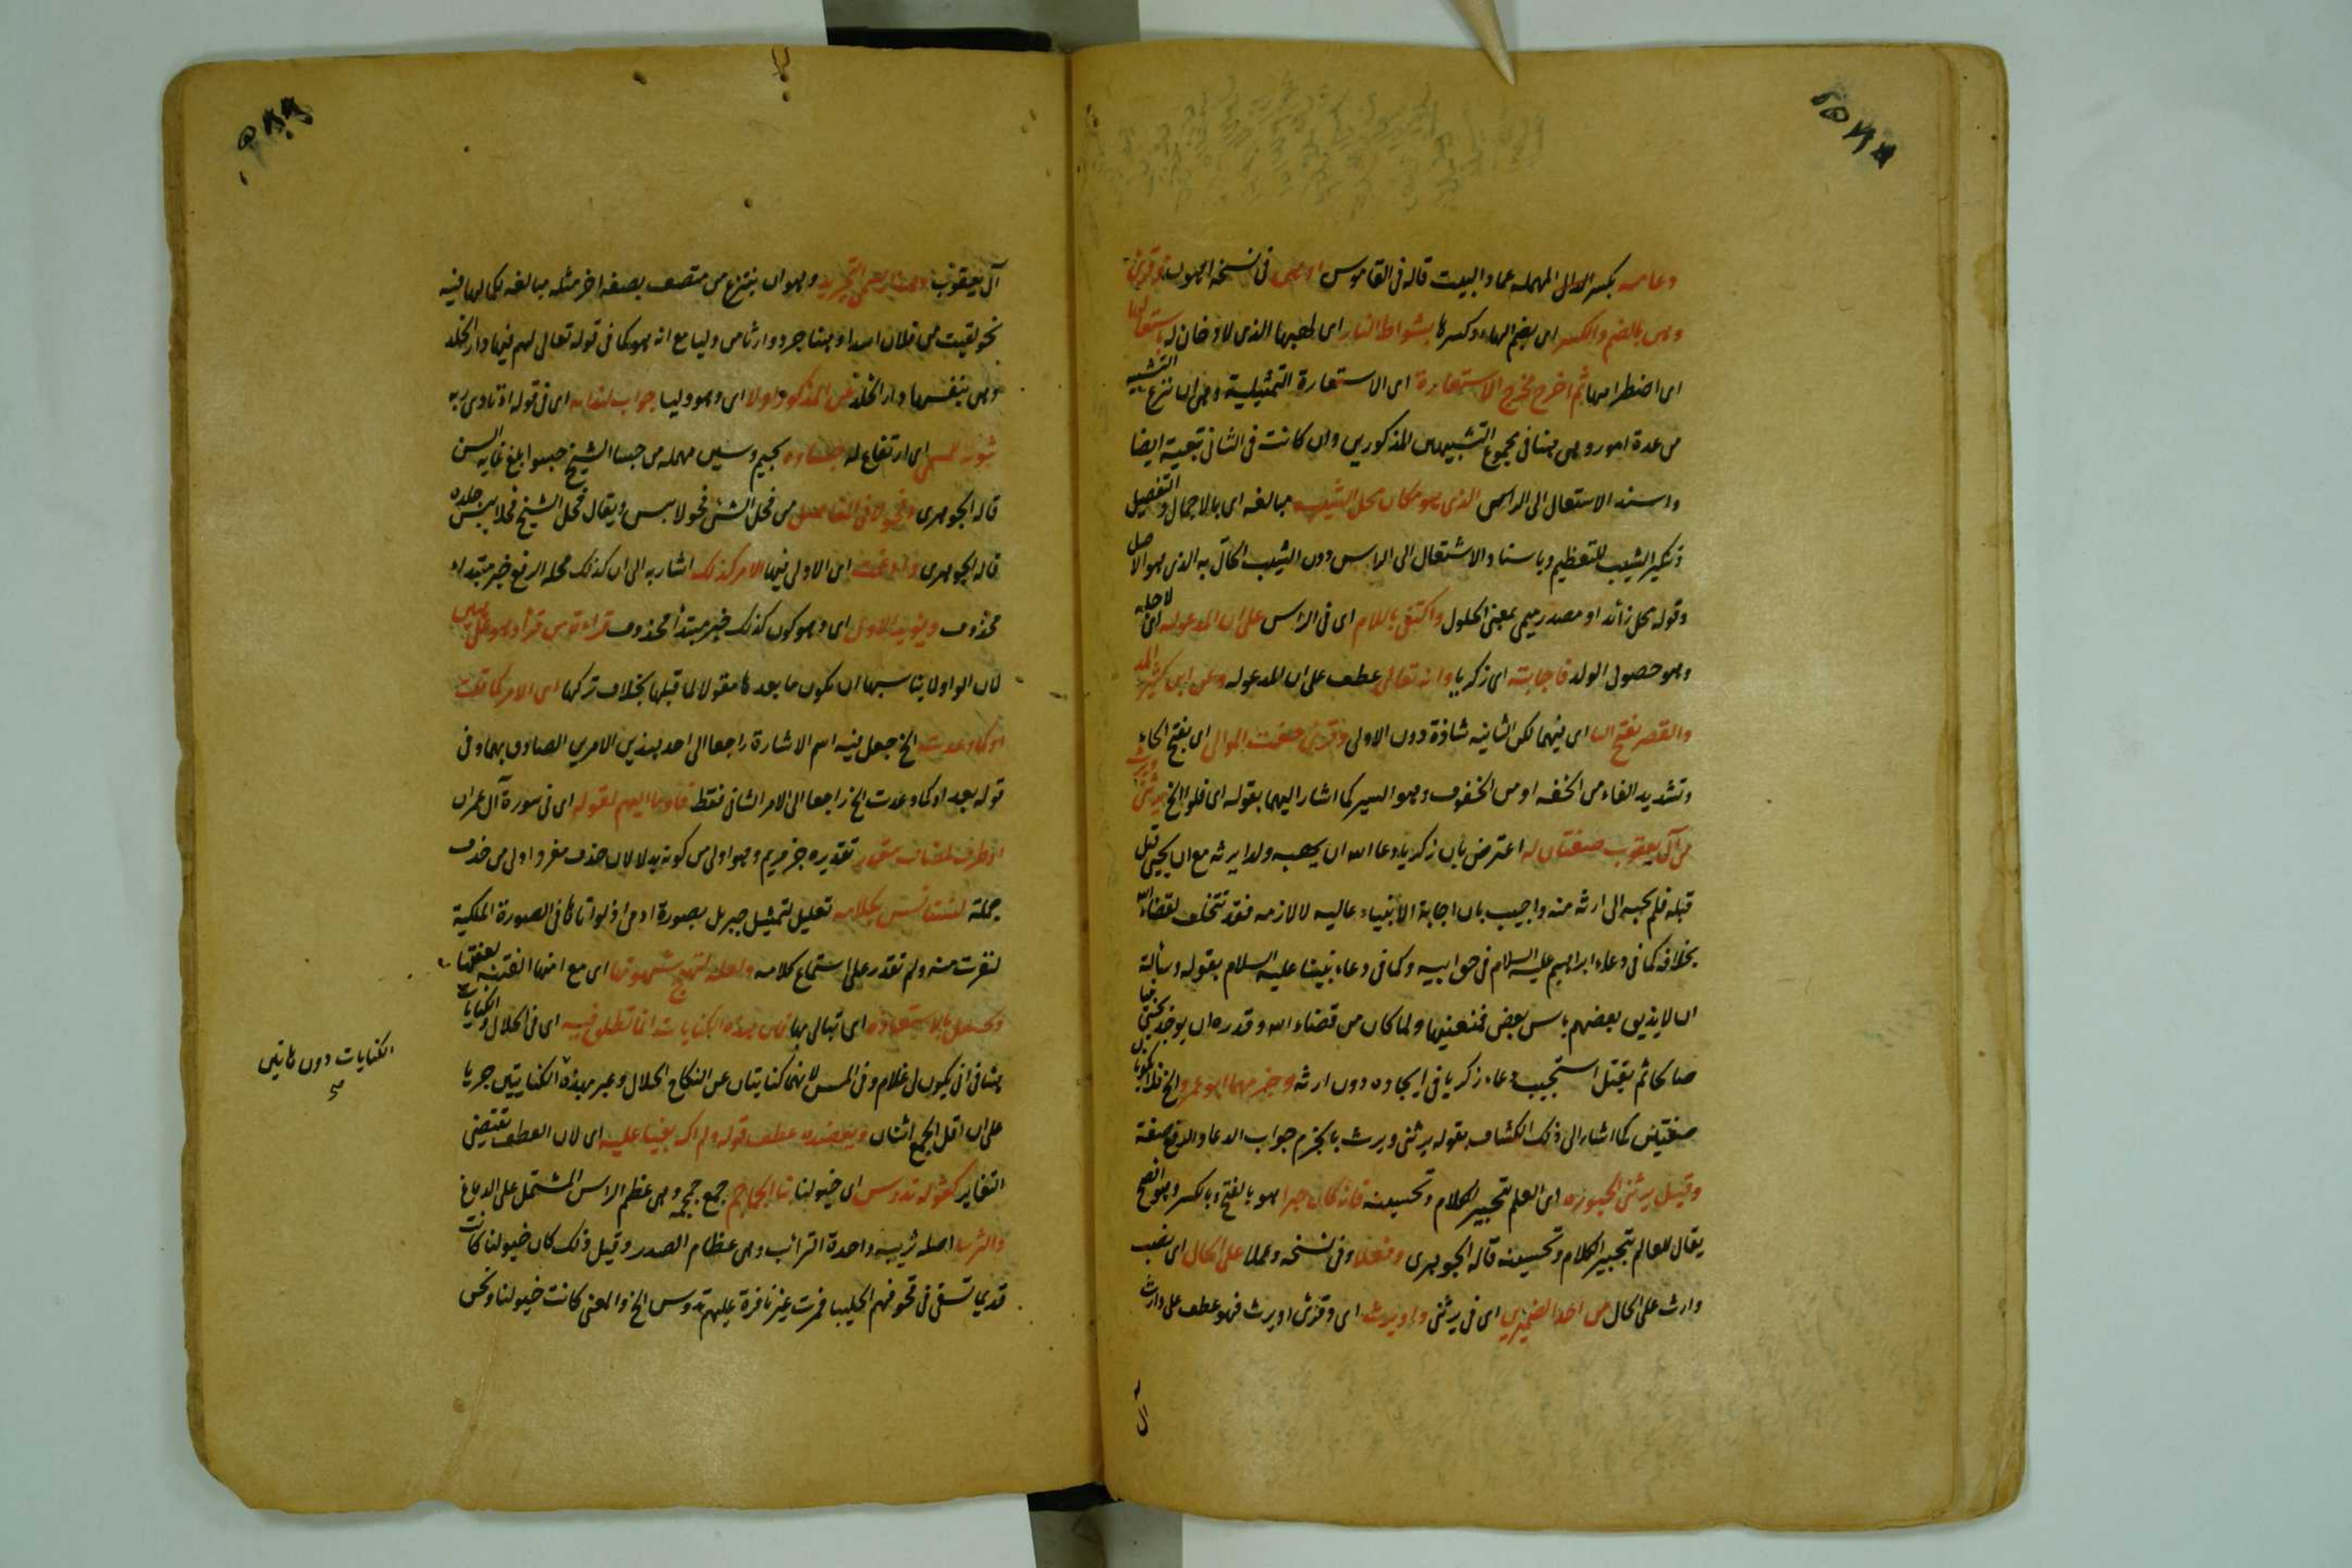 دعامه بكسر الدال المهمله عماد البيت قاله فى القاموس او هى فى نسخه اصول وقرئ
وهى بالضم والكسر اى بضم الهاء وكسرها بشواظ النار اى لهبها الذى لا دخان له باشتعالها
اى اضطرامها ثم اخرج مخرج الاستعارة اى الاستعارة التمثيلية وهى ان ننزع التشبيه
من عدة امور وهى هنا فى مجموع التشبيهين المذكورين وان كانت فى الثانى تبعية ايضا
واسند الاستعال الى الراس الذى هو مكان محل الشيب مبالغه اى بالاجمال والتفصيل
وتنكير الشيب للتعظيم وباسناد الاشتعال الى الراس دون الشيب الحال به الذى هو الاصل
وقوله محل زائد او مصدر ميمى بمعنى الحلول واكتفى باللام اى فى الراس على ان المدعو له اى لاجله
وهو حصول الولد فاجابته اى زكريا وانه تعالى عطف على ان المدعو له وعن ابن كثير المد
والقصر بفتح اليا اى فيهما لكن الثانيه شاذة دون الاولى وقرئ خفت الموالى اى بفتح الخاء
وتشديد الفاء من الخفه او من الخفوف وهو السير كما اشار اليهما بقوله اى قلوا الخ يرثنى ويرث
من آل يعقوب صفتان له اعترض بان زكريا دعا الله ان يهبه ولدا يرثه مع ان يحيى قتل
قبله فلم يجبه الى ارثه منه واجيب بان اجابة الانبياء غالبه لا لازمه فقد تتخلف لقضاء الله
بخلافه كما فى دعاء ابراهيم عليه السلام فى حق ابيه وكما فى دعاء نبينا عليه السلام بقوله وسألته
ان لا يذيق بعضهم باس بعض فمنعنيها ولما كان من قضاء الله وقدره ان يوجد يحيى نبيا
صالحا ثم يقتل استجيب دعاء زكريا فى ايجاده دون ارثه وجزمهما ابو عمرو الخ نظرا لكونهما
صفتين كما اشار الى ذلك الكشاف بقوله يرثنى ويرث بالجزم جواب الدعا والرفع صفة
وقيل يرثنى الحبورة اى العلم بتحبير الكلام وتحسينه فانه كان حبرا هو بالفتح وبالكسر وهو افصح
يقال للعالم بتحبير الكلام وتحسينه قاله الجوهرى وفى نسخه وعلما على الحال اى نصب
وارث على الحال من احد الضميرين اى فى يرثنى واو يرث اى وقرئ او يرث فهو عطف على وارث
آل يعقوب وهذا يسمى التجريد وهو ان ينتزع من متصف بصفه اخر مثله مبالغه لكمالها فيه
نحو لقيت من فلان اسدا وهنا جرد وارثا من وليا مع انه هو كما فى قوله تعالى لهم فيها دار الخلد
وهى بنفسها دار الخلد من المذكور اولا اى وهو وليا جواب لندائه اى فى قوله اذ نادى ربه
اى ارتفاع له جساوه بجيم وسين مهمله من جسا الشيخ جسوا بلغ غايه السن
قاله الجوهرى من قحل الشئ قحولا يبس ويقال قحل الشيخ قحلا يبس جلده
قاله الجوهرى اى الاولى فيها الامر كذلك اشار به الى ان كذلك محله الرفع خبر مبتداء
محذوف ويؤيد الاول اى وهو كون كذلك خبر مبتدأ محذوف قراءة من قرأ وهو على هين
لان الواو لا يناسبها ان يكون ما بعدها مقولا لما قبلها بخلاف تركها اى الامر كما قلت
او كما وعدت الخ جعل فيه اسم الاشارة راجعا الى احد هذين الامرين الصادق بهما وفى
قوله بعد او كما وعدت الخ راجعا الى الامر الثانى فقط فاوما اليهم لقوله اى فى سورة آل عمران
او ظرف لمضاف مقدر تقديره خبر مريم وهو اولى من كونه بدلا لان حذف مفرد اولى من حذف
جملة لتستانس بكلامه تعليل لتمثيل جبريل بصورة ادمى اذ لو اتاها فى الصورة الملكية
لنفرت منه ولم تقدر على استماع كلامه ولعله لتهيج شهوتها اى مع انها العفتيه بعفتها
اى تبالى بها فان هذه الكنايات انما تطلق فيه اى فى الحلال والكنايات
هنا فى انى يكون لى غلام وفى المس لانهما كنايتان عن النكاح الحلال وعبر بهذه الكنايتين جريا
على ان اقل الجمع اثنان ويعضده عطف قوله ولم اك بغيا عليه اى لان العطف يقتضى
التغاير كقوله تدوس اى خيولنا بنا الجماجم جمع جمجمه وهى عظم الراس المشتمل على الدماغ
والتريبا اصله تريبه واحدة الترائب وهى عظام الصدر وقيل ذلك كان خيولنا كانت
قديما تسقى فى قحوفهم الحليبا فمرت غير نافرة عليهم تدوس الخ والمعنى كانت خيولنا ونحن
الكنايات دون هاتين
صح